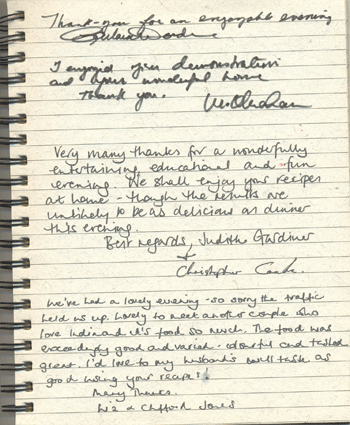 Thank-you for an enjoyable evening
I enjoyed your demonstration
and your wonderful home
Thank you.
Very many thanks for a wonderfully
entertaining, educational and fun
evening. We shall enjoy your recipes
at home - though the results are
unlikely to be as delicious as dinner
this evening.
Best regards, Judith Gardiner
+
Christopher
We've had a lovely evening - so sorry the traffic
held us up. Lovely to meet another couple who
love India and it's food so much. The food was
exceedingly good and varied - colourful and tasted
great. I'd love to my husband's will task as
good using your recipes!
Many Thanks.
Liz & Clifford Jones